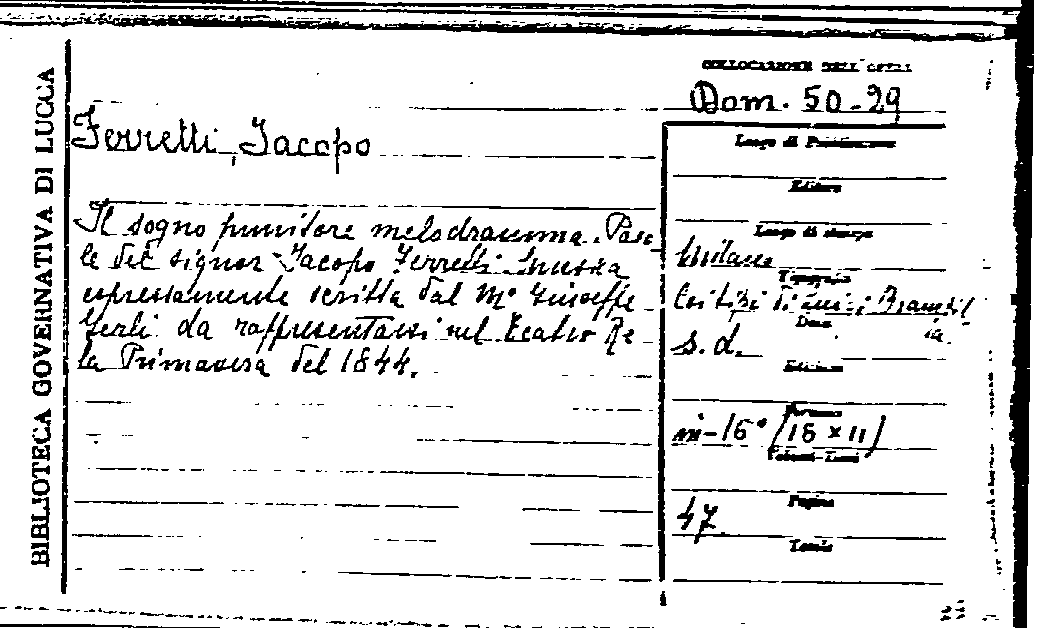 BIBLIOTECA GOVERNATIVA DI LUCCA
COLLOCAZIONE DELL'OPERA
Dom. 50-29
Ferretti, Jacopo
Il sogno punitore melodramma. Paro
le del signor Jacopo Ferretti musica
espressamente scritta dal Mº Giuseppe
Gerli da rappresentarsi nel Teatro Re
la Primavera del 1844.
Luogo di Pubblicazione
Editore
Luogo di stampa
Milano
Tipografia
Brambil
la
Data
s. d.
Edizione
Formato
in-16° (16 x 11)
Volumi-Tomi
Pagine
47
Tavole